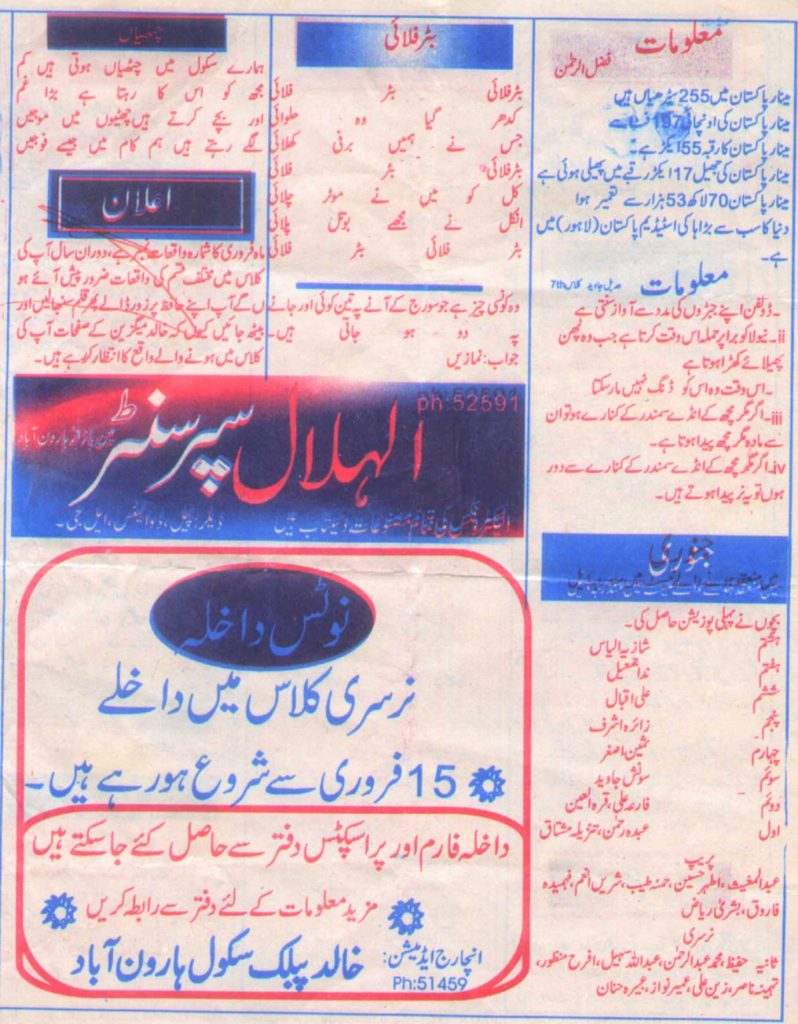 معلومات
فضل الرحمٰن
مینار پاکستان میں 255 سیڑھیاں ہیں
مینار پاکستان کی اونچائی 197 فٹ ہے
مینار پاکستان کا رقبہ 55 ایکڑ ہے۔
مینار پاکستان کی جھیل 17 ایکڑ رقبے میں پھیلی ہوئی ہے
مینار پاکستان 70 لاکھ 53 ہزار سے تعمیر ہوا
دنیا کا سب سے بڑا ہاکی اسٹیڈیم پاکستان (لاہور) میں
ہے۔
معلومات
جاوید کلاس 7th
i۔ ڈولفن اپنے جبڑوں کی مدد سے آواز سنتی ہے
ii۔ نیولا کوبرا پر حملہ اس وقت کرتا ہے جب وہ پھن
پھیلائے کھڑا ہوتا ہے
۔اس وقت وہ اس کو ڈنگ نہیں مار سکتا
iii۔ اگر مگرمچھ کے انڈے سمندر کے کنارے ہو تو ان
سے مادہ مگرمچھ پیدا ہوتا ہے۔
iv۔ اگر مگرمچھ کے انڈے سمندر کے کنارے سے دور
ہوں تو یہ نر پیدا ہوتے ہیں۔
جنوری
میں منعقد ہونے والے ٹیسٹ میں مندرجہ ذیل
بچوں نے پہلی پوزیشن حاصل کی۔
ہشتم شازیہ الیاس
ہفتم ندا جمیل
ششم علی اقبال
پنجم زائرہ اشرف
چہارم اصغر
سوئم سونش جاوید
دوئم فارعہ علی، قرۃ العین
اول عبدہ رحمٰن، تنزیلہ مشتاق
پریپ
عبدالمغیث، اطہر حسین، حمنہ طیب، شرین انعم، فہمیدہ
فاروق، بشریٰ ریاض
نرسری
ثانیہ حفیظ، محمد عبدالرحمٰن، عبداللہ سہیل، افرح منظور،
تہمینہ ناصر، زین علی، عمیر نواز، عمیرہ حنان
بٹر فلائی
بٹر فلائی بٹر فلائی
کدھر گیا وہ حلوائی
جس نے ہمیں برنی کھلائی
بٹر فلائی بٹر فلائی
کل کو میں نے موٹر چلائی
انکل نے مجھے بوتل پلائی
بٹر فلائی بٹر فلائی
وہ کونسی چیز ہے جو سورج کے آنے پہ تین کوئی اور جانے
پہ دو ہو جاتی ہیں۔
جواب: نمازیں
چھٹیاں
ہمارے سکول میں چھٹیاں ہوتی ہیں کم
مجھ کو اس کا رہتا ہے بڑا غم
اور بچے کرتے ہیں چھٹیوں میں موجیں
لگے رہتے ہیں ہم کام میں جیسے فوجیں
اعلان
ماہ فروری کا شمارہ واقعات نمبر ہے، دوران سال آپ کی
کلاس میں مختلف قسم کی واقعات ضرور پیش آئے ہو
ں گے آپ اپنے حافظہ پر زور ڈالے پھر قلم سنبھالیں اور
بیٹھ جائیں کیوں کہ خالد میگزین کے صفحات آپ کی
کلاس میں ہونے والے واقع کا انتظار کر رہے ہیں۔
ph:52591
الہلال سپر سنٹر
مین بازار ہارون آباد
الیکٹرونکس کی تمام مصنوعات دستیاب ہیں
ڈیلر: پیل، ڈولفینس، ایل جی۔
نوٹس داخلہ
نرسری کلاس میں داخلے
15 فروری سے شروع ہو رہے ہیں۔
داخلہ فارم اور پراسپکٹس دفتر سے حاصل کئے جا سکتے ہیں
مزید معلومات کے لئے دفتر سے رابطہ کریں
انچارج ایڈمیشن: خالد پبلک سکول ہارون آباد
Ph:51459